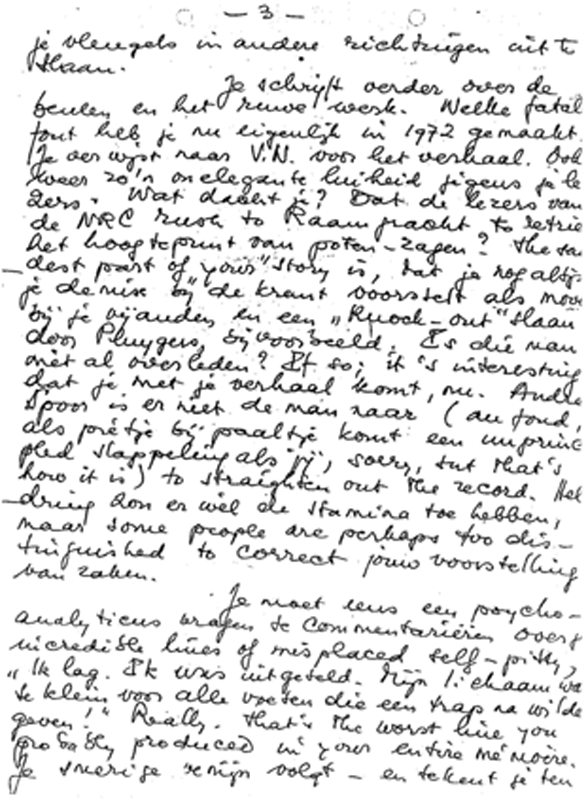 — 3 —
je vleugels in andere richtingen uit te
slaan.
Je schrijft verder over de
beulen en het ruwe werk. Welke fatal
fout heb je nu eigenlijk in 1972 gemaakt.
Je verwijst naar V.N. voor het verhaal. Ook
weer zo'n onelegante luiheid jegens je le
zers. Wat dacht je? Dat de lezers van
de NRC rush to Raamgracht to retrie
het hoogtepunt van poten-zagen? The sad
dest part of your "story" is, dat je nog altijd
je demise bij de krant voorstelt als
bij je vijanden en een "knock-out" slaan
door Pluygers, bijvoorbeeld. Is die man
niet al overleden? If so, it's interesting
dat je met je verhaal komt, nu. André
Spoor is er niet de man naar (au fond,
als prétje bij paaltje komt een unprinc
pled slappeling als jij, sorry, but that's
how it is) to straighten out the record. Hel
dring zou er wel de stamina toe hebben,
maar some people are perhaps too dis-
tinguished to correct jouw voorstelling
van zaken.
Je moet eens een psycho-
analyticus vragen te commentariëren over
incredible lines of misplaced self-pity,
"Ik lag. Ik was uitgeteld. Mijn lichaam was
te klein voor alle voeten die een trap na wilde
geven!" Really. That's the worst line you
probably produced in your entire mémoire.
Je smerige venijn volgt — en tekent je ten